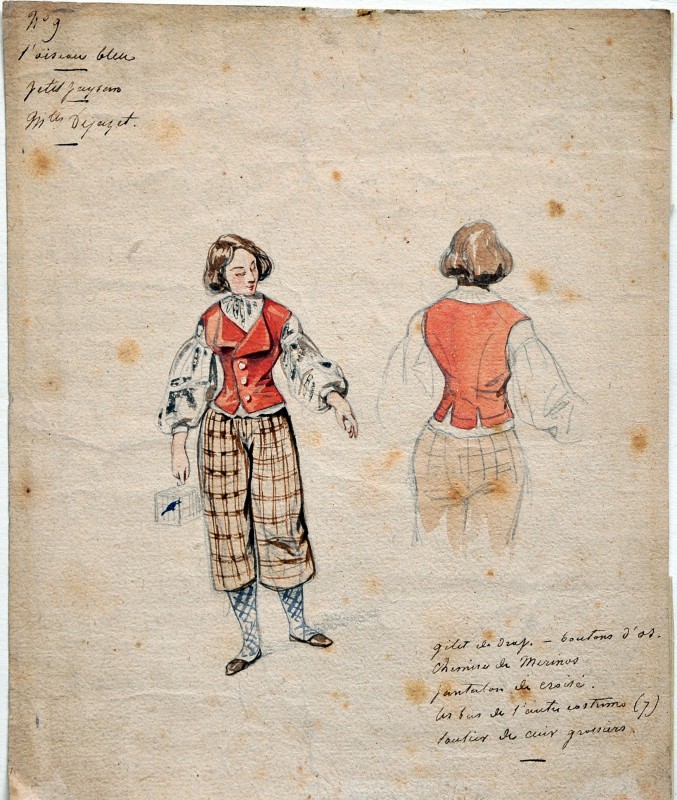 No 9
l'oiseau bleu
petit paysan
Mlle Dejazet.
gilet de drap. – boutons d'os.
Chemise de Merinos
pantalon de croisé.
les bas de l'autre costume (7)
Soulier de cuir grossiers